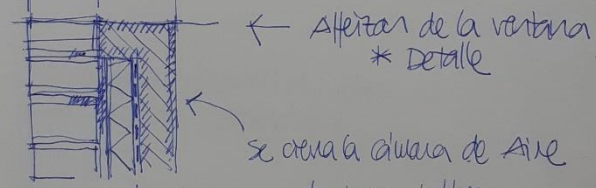 ← Alfeizar de la ventana
* Detalle
se cierra la cámara de Aire